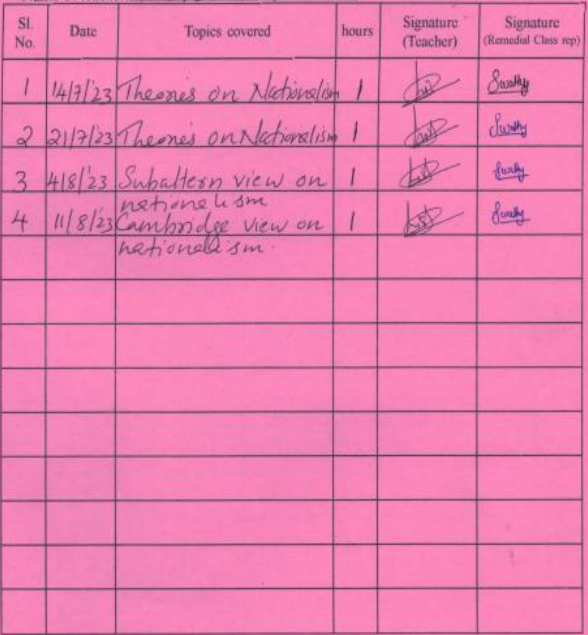 Sl. No. Date Topics covered hours Signature (Teacher) Signature (Remedial Class rep)
1 14/7/23 Theories on Nationalism 1 Swathy
2 21/7/23 Theories on Nationalism 1 Swathy
3 4/8/23 Subaltern view on 1 Swathy
nationalism
4 11/8/23 Cambridge view on 1 Swathy
nationalism.